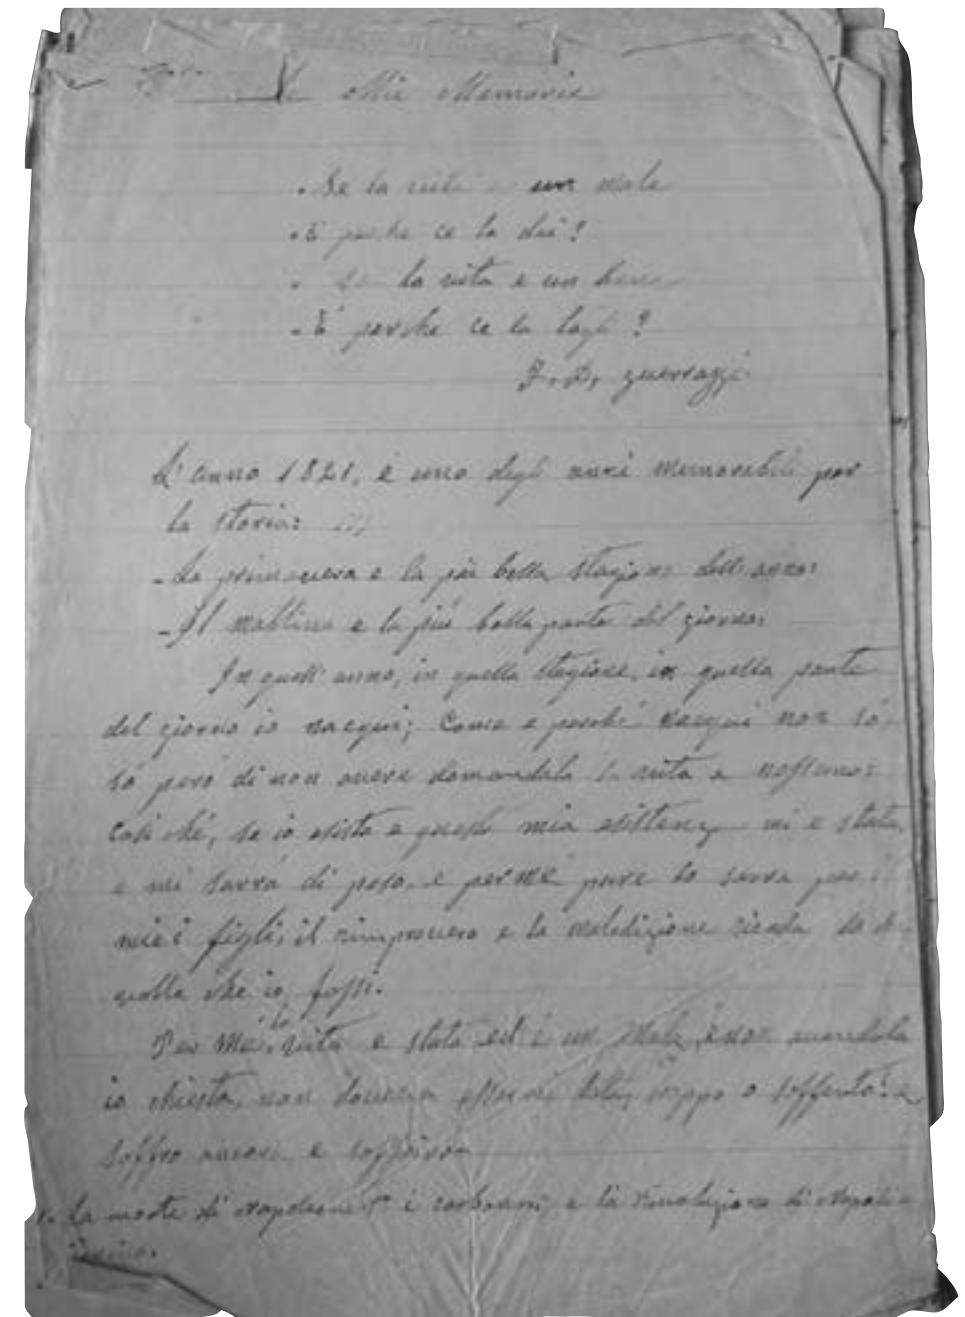 Mie Memorie
- Se la vita è un male
- E perche ce la dai?
- Se la vita e un bene
- E perche ce la togli?
F. D. Guerrazzi
L'anno 1821, è uno degli anni memorabili per
la storia: (1)
- La primavera e la più bella stagione dell'anno:
- Il mattino e la più bella parte del giorno:
In quell'anno, in quella stagione, in quella parte
del giorno io nacqui; Come e perché nacqui non só,
só peró di non avere domandato la vita a nessuno:
Cosi ché, se io esisto e questa mia esistenza mi e stata,
e mi sarrá di peso, e per me pure lo sarra per i
miei figli, il rimprovero e la maledizione ricada
quella che io fossi.
Per me, la vita e stata ed è un male, e non avendola
io chiesta, non doveva essermi data, troppo o sofferto: e
soffro ancora e soffriro.
1. La morte di Napoleone 1º i carbonari, e la rivoluzione di Napoli e
Torino.